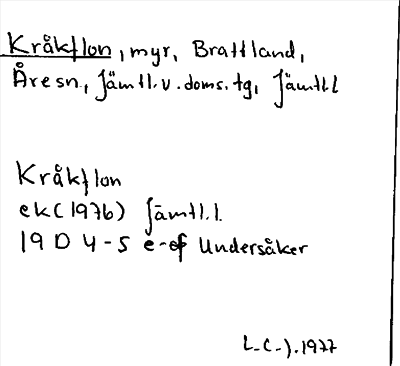 Kråkflon, myr, Brattland,
Åresn, Jämtl.v.doms.tg, Jämtl.l
Kråkflon
ek (1976) Jämtl.l.
19 D 4-5 e-ef Undersåker
L-C-).1977